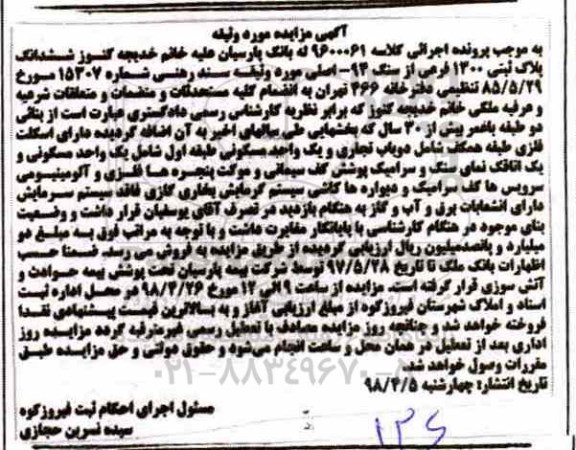 آگهی مزایده مورد وثیقه
به موجب پرونده اجرائی کلاسه ۹۶۰۰۰۶۱ له بانک پارسیان علیه خانم خدیجه کنوز ششدانگ
پلاک ثبتی ۱۳۰۰ فرعی از سنگ ۹۴- اصلی مورد وثیقه سند رهنی شماره ۱۵۳۰۷ مورخ
۸۵/۵/۲۹ تنظیمی دفترخانه ۴۶۶ تهران به انضمام کلیه مستحدثات و منضمات و متعلقات شرعیه
و عرفیه ملکی خانم خدیجه کنوز که برابر نظریه کارشناس رسمی دادگستری عبارت است از بنائی
دو طبقه باعمر بیش از ۳۰ سال که بخشهایی طی سالهای اخیر به آن اضافه گردیده دارای اسکلت
فلزی طبقه همکف شامل دوباب تجاری و یک واحد مسکونی طبقه اول شامل یک واحد مسکونی و
یک اتاقک نمای سنگ و سرامیک پوشش کف سیمانی و موکت پنجره ها فلزی و آلومینیومی
سرویس ها کف سرامیک و دیواره ها کاشی سیستم گرمایش بخاری گازی فاقد سیستم سرمایش
دارای انشعابات برق و آب و گاز به هنگام بازدید در تصرف آقای یوسفیان قرار داشت و وضعیت
بنای موجود در هنگام کارشناسی با پایانکار مغایرت داشت و با توجه به مراتب فوق به مبلغ دو
میلیارد و پانصدمیلیون ریال ارزیابی گردیده از طریق مزایده به فروش می رسد. ضمنا حسب
اظهارات بانک ملک تا تاریخ ۹۷/۵/۲۸ توسط شرکت بیمه پارسیان تحت پوشش بیمه حوادث و
آتش سوزی قرار گرفته است. مزایده از ساعت ۹ الی ۱۲ مورخ ۹۸/۴/۲۶ در محل اداره ثبت
اسناد و املاک شهرستان فیروزکوه از مبلغ ارزیابی آغاز و به بالاترین قیمت پیشنهادی نقدا
فروخته خواهد شد و چنانچه روز مزایده مصادف با تعطیل رسمی غیرمترقبه گردد مزایده روز
اداری بعد از تعطیل در همان محل و ساعت انجام می‌شود و حقوق دولتی و حق مزایده طبق
مقررات وصول خواهد شد.
تاریخ انتشار: چهارشنبه ۹۸/۴/۵
مسئول اجرای احکام ثبت فیروزکوه
سیده نسرین حجازی
۱۳۶
۰۲۱-۸۸۳۴۹۶۷۰-۵